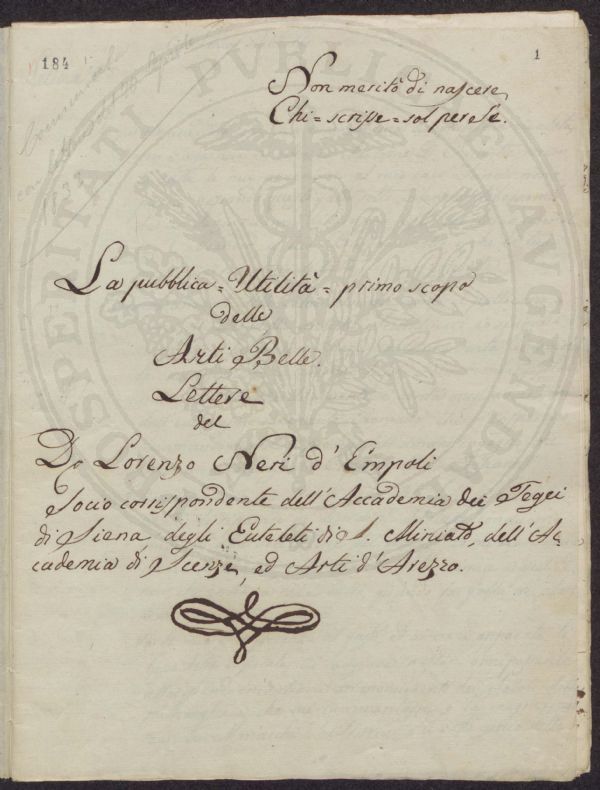 184
1
Non meritò di nascere
Chi = scrisse = sol per se.
La pubblica = Utilità = primo scopo
delle
Arti Belle.
Lettere
del
Dr Lorenzo Neri d'Empoli
Socio corrispondente dell'Accademia dei Tegei
di Siena degli Euteleti di S. Miniato, dell'Ac
cademia di Scenze, ed Arti d'Arezzo.
PROSPERITATI PVBLICAE AVGENDAE